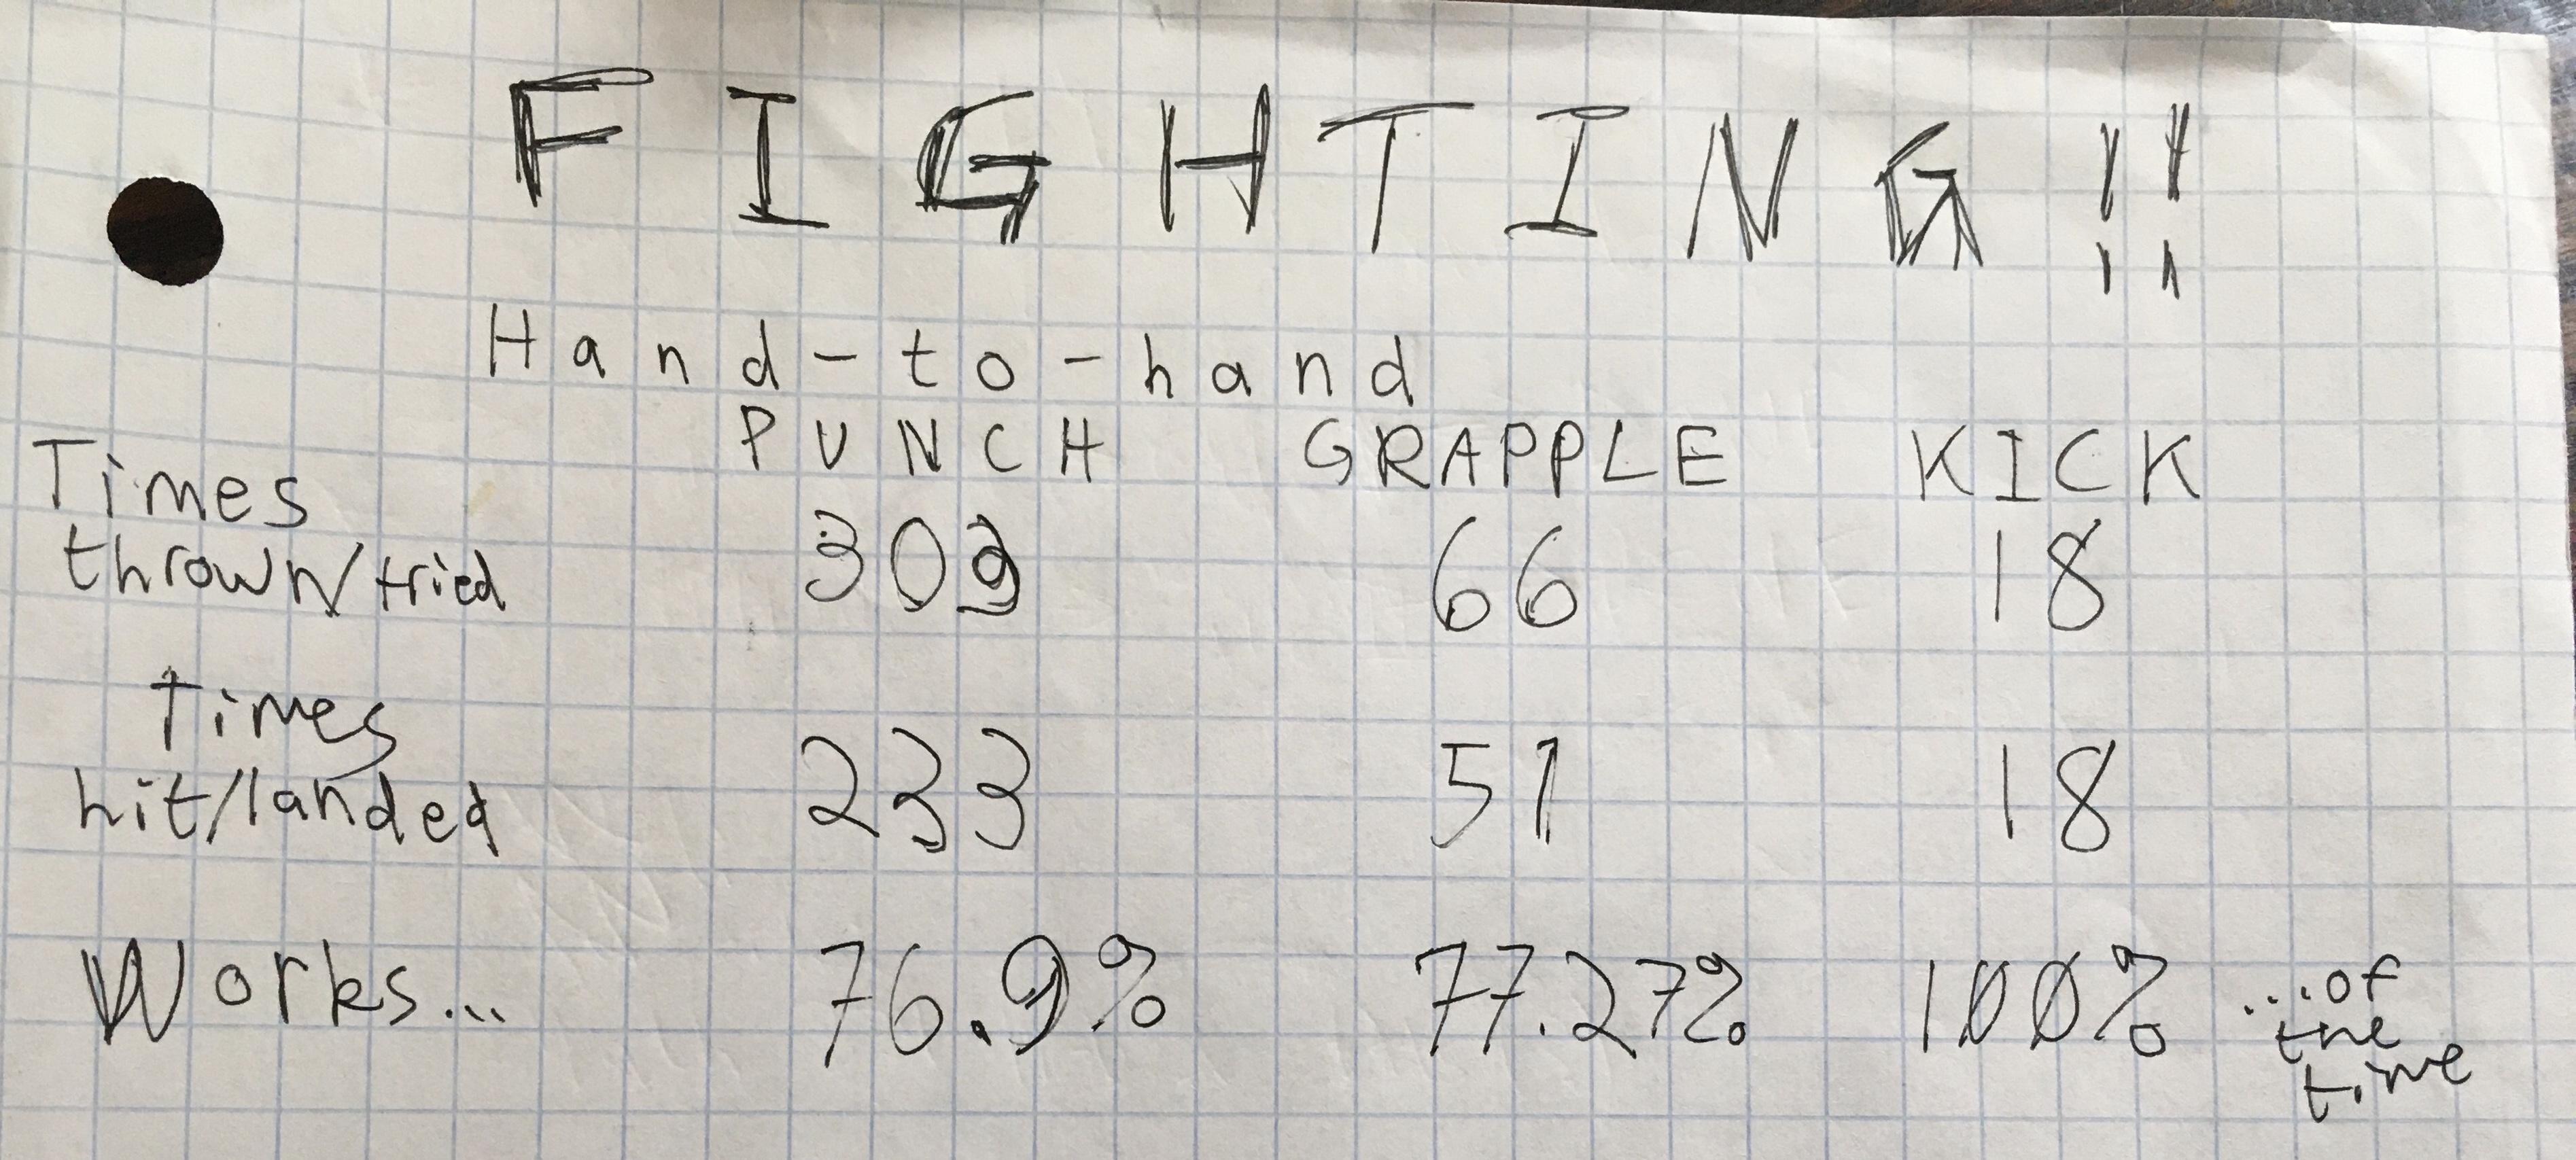 FIGHTING!!
Hand-to-hand
PUNCH GRAPPLE KICK
Times
thrown/tried 303 66 18
Times
hit/landed 233 51 18
Works... 76.9% 77.27% 100% ...of
the
time